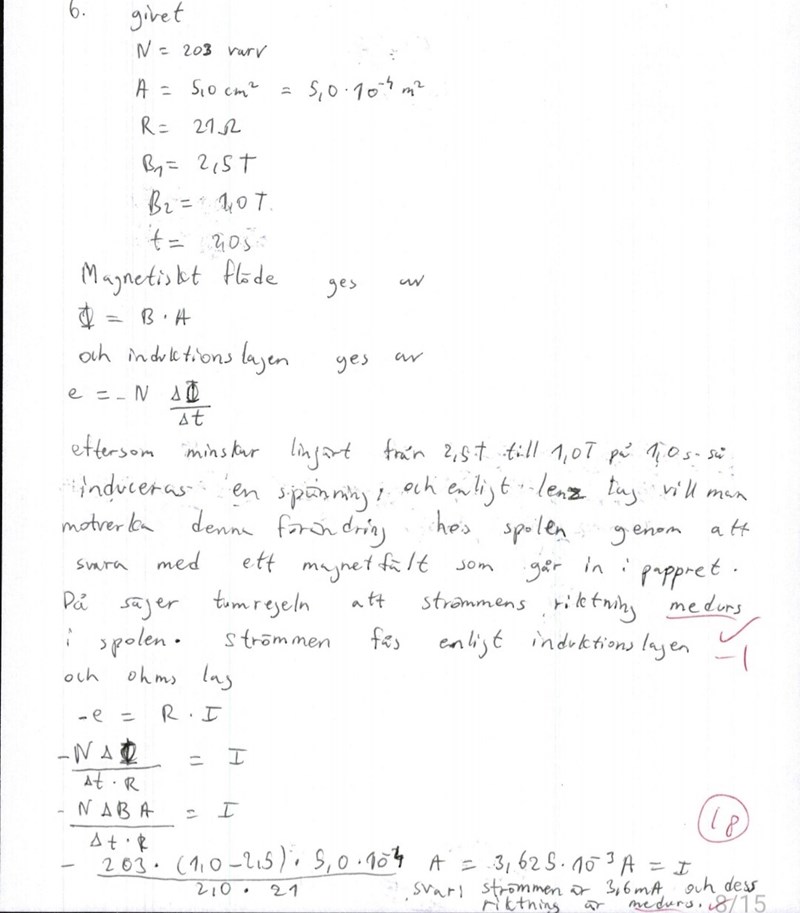 6. givet
N = 203 varv
A = 5,0 cm² = 5,0·10⁻⁴ m²
R = 21Ω
B₁ = 2,5T
B₂ = 1,0T
t = 2,0s
Magnetiskt flöde ges av
Φ = B·A
och induktionslagen ges av
e = -N ΔΦ/Δt
eftersom minskar linjärt från 2,5T till 1,0T på 1,0s så
induceras en spänning, och enligt lenz lag vill man
motverka denna förändring hos spolen genom att
svara med ett magnetfält som går in i pappret.
Då säger tumregeln att strömmens riktning medurs
i spolen. strömmen fås enligt induktionslagen
-1
och ohms lag
-e = R·I
-NΔΦ/Δt·R = I
-NΔBA/Δt·R = I
18
- 203·(1,0-2,5)·5,0·10⁻⁴/2,0·21 A = 3,625·10⁻³A = I
svar: strömmen är 3,6mA och dess
riktning är medurs. 8/15